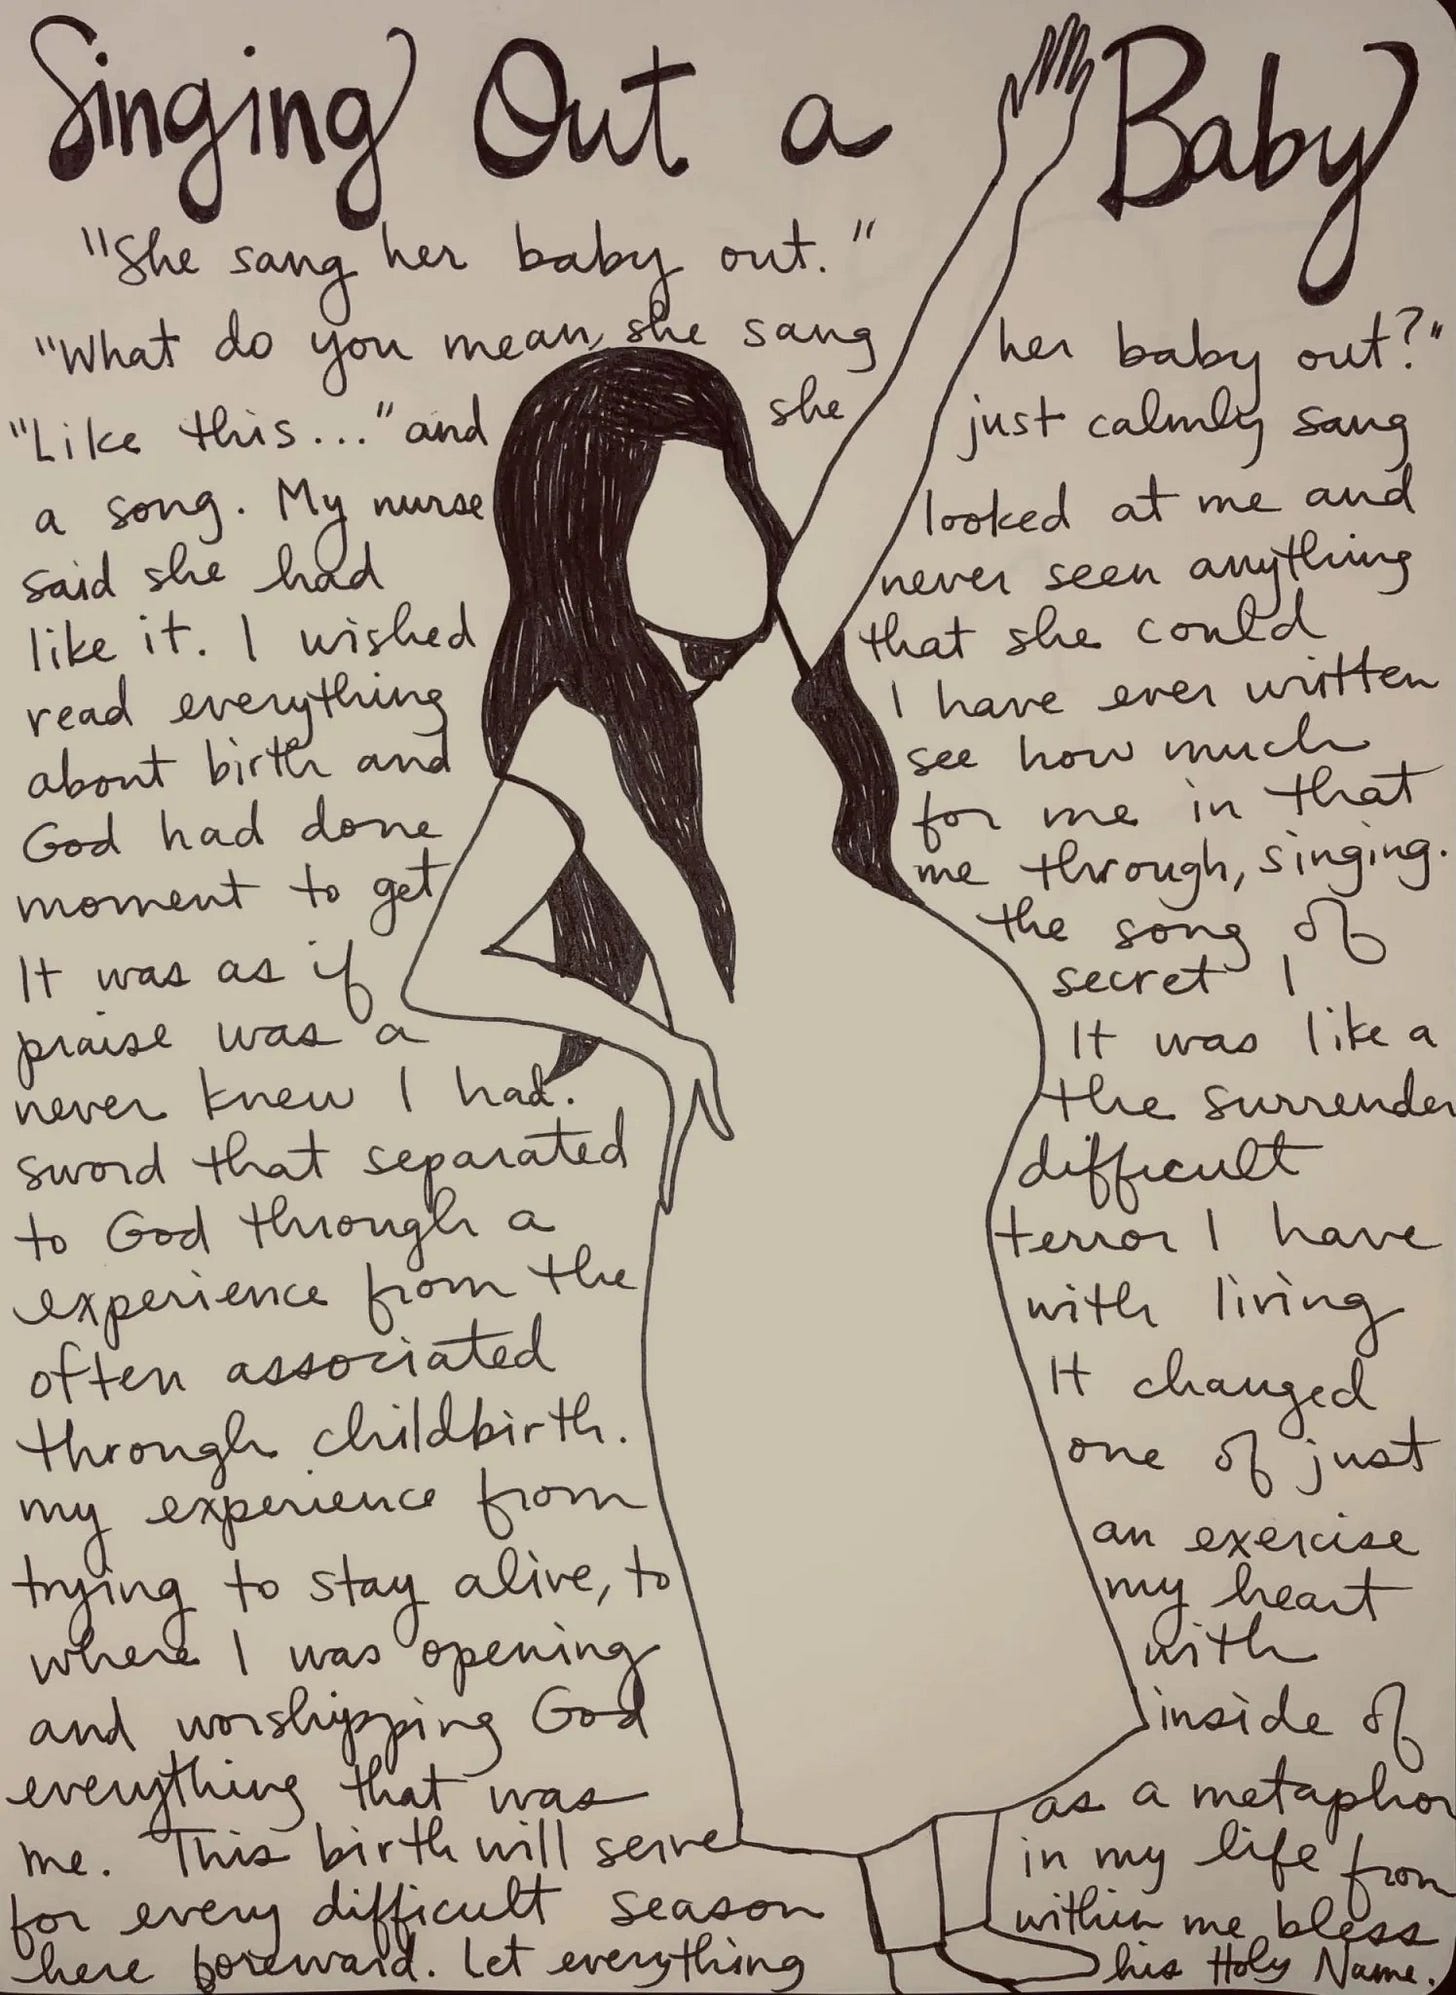 Singing Out a Baby
"She sang her baby out."
"What do you mean, she sang her baby out?"
"Like this..." and she just calmly sang
a song. My nurse looked at me and
said she had never seen anything
like it. I wished that she could
read everything I have ever written
about birth and see how much
God had done for me in that
moment to get me through, singing.
It was as if the song of
praise was a secret I
never knew I had. It was like a
sword that separated the surrender
to God through a difficult
experience from the terror I have
often associated with living
through childbirth. It changed
my experience from one of just
trying to stay alive, to an exercise
where I was opening my heart
and worshipping God with
everything that was inside of
me. This birth will serve as a metaphor
for every difficult season in my life from
here foreward. Let everything within me bless
his Holy Name.